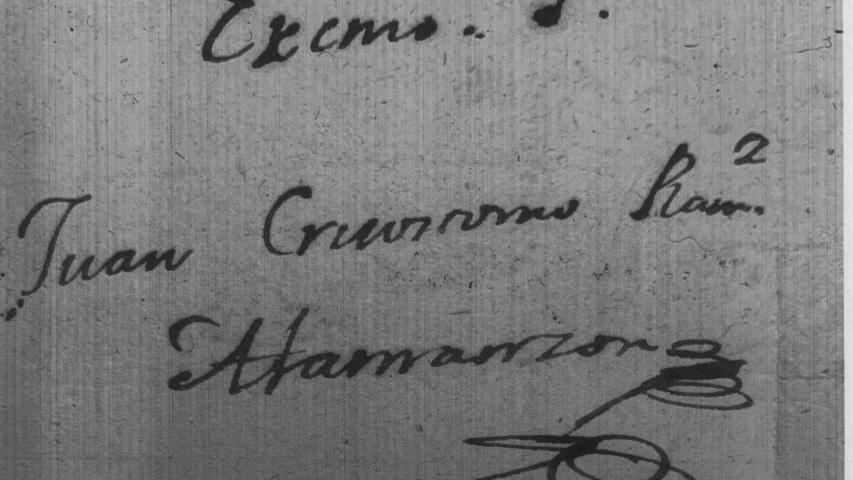 Excmo. S.
Juan Crisostomo Ram.z
Alamanzon